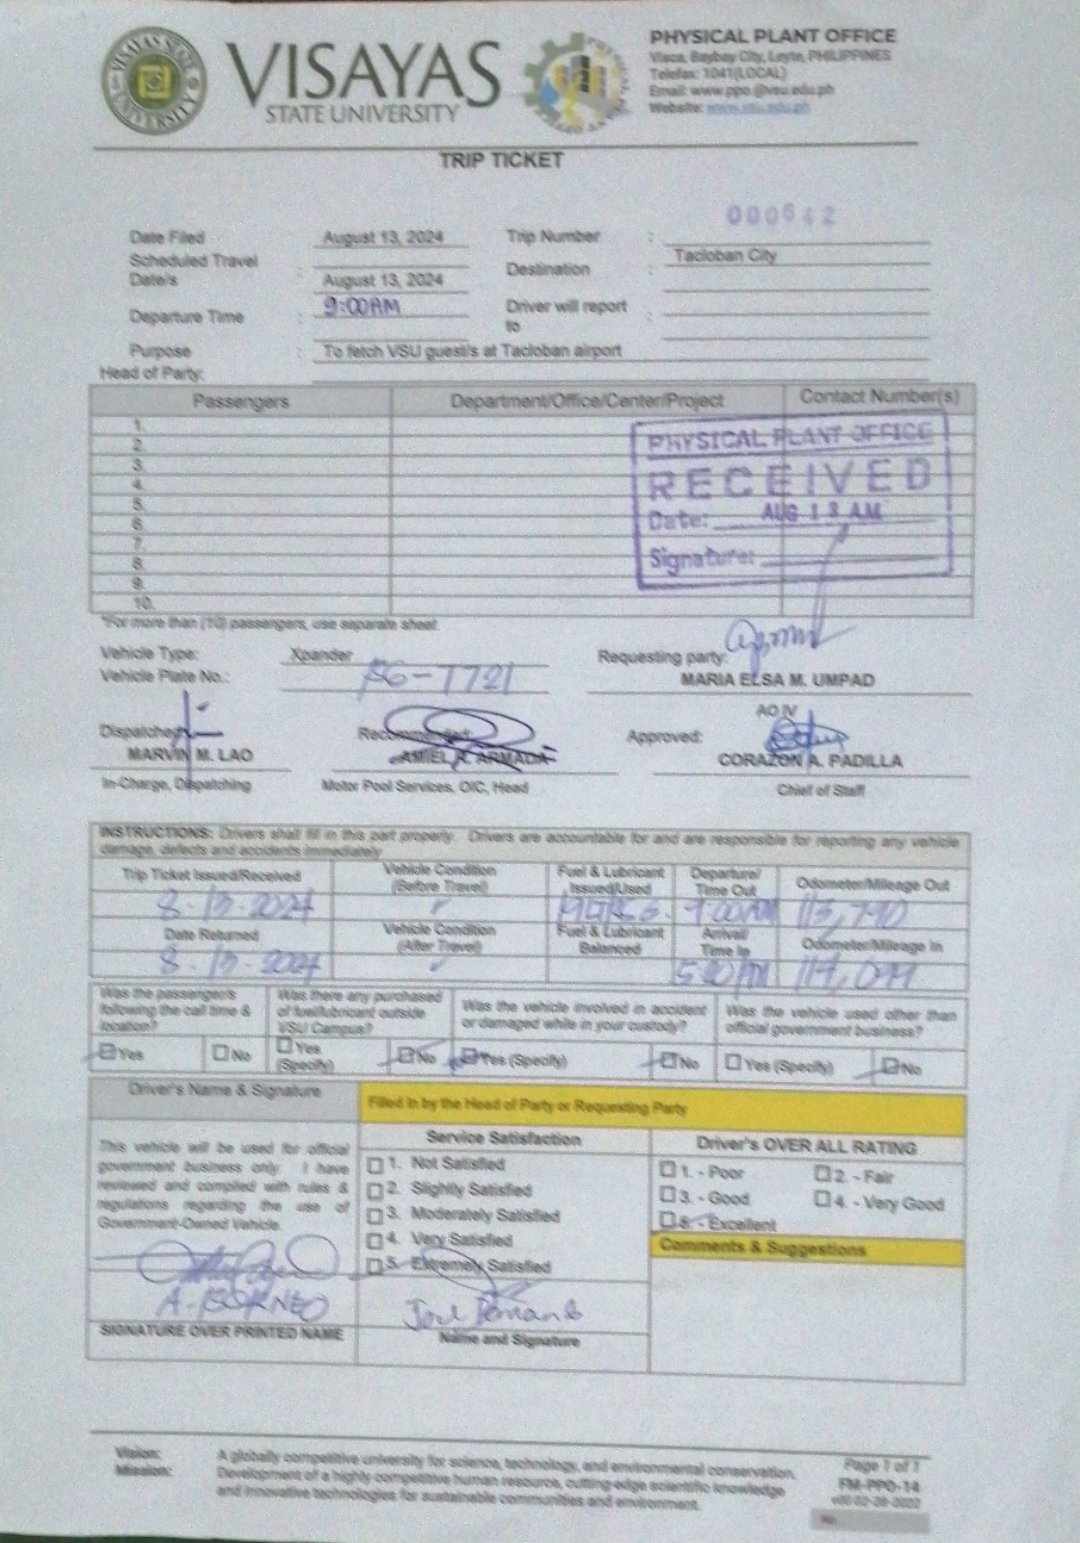 VISAYAS STATE UNIVERSITY
VISAYAS
STATE UNIVERSITY
PHYSICAL PLANT OFFICE
Visca, Baybay City, Leyte, PHILIPPINES
Telefax: 1041(LOCAL)
Email: www.ppo.@vsu.edu.ph
Website: www.vsu.edu.ph
TRIP TICKET
000642
Date Filed August 13, 2024 Trip Number :
Scheduled Travel Date/s : August 13, 2024 Destination : Tacloban City
Departure Time : 9:00AM Driver will report to :
Purpose : To fetch VSU guest/s at Tacloban airport
Head of Party:
Passengers Department/Office/Center/Project Contact Number(s)
1.
2.
3.
4.
5.
6.
7.
8.
9.
10.
PHYSICAL PLANT OFFICE
RECEIVED
Date: AUG 13 AM
Signature:
*For more than (10) passengers, use separate sheet.
Vehicle Type: Xpander Requesting party:
Vehicle Plate No.: MARIA ELSA M. UMPAD
AO IV
Dispatched: Recommended: Approved:
MARVIN M. LAO AMIEL R. ARMADA CORAZON A. PADILLA
In-Charge, Dispatching Motor Pool Services, OIC, Head Chief of Staff
INSTRUCTIONS: Drivers shall fill in this part properly. Drivers are accountable for and are responsible for reporting any vehicle
damage, defects and accidents immediately
Trip Ticket Issued/Received Vehicle Condition (Before Travel) Fuel & Lubricant Issued/Used Departure/ Time Out Odometer/Mileage Out
8-13-2024 9:00AM 113,790
Date Returned Vehicle Condition (After Travel) Fuel & Lubricant Balanced Arrival/ Time In Odometer/Mileage In
8-13-2024
Was the passenger/s following the call time & location? Was there any purchased of fuel/lubricant outside VSU Campus? Was the vehicle involved in accident or damaged while in your custody? Was the vehicle used other than official government business?
Yes No Yes (Specify) No Yes (Specify) No Yes (Specify) No
Driver's Name & Signature Filled In by the Head of Party or Requesting Party
This vehicle will be used for official
government business only. I have
reviewed and complied with rules &
regulations regarding the use of
Government-Owned Vehicle.
A. BORNEO
SIGNATURE OVER PRINTED NAME
Service Satisfaction
1. Not Satisfied
2. Slightly Satisfied
3. Moderately Satisfied
4. Very Satisfied
5. Extremely Satisfied
Name and Signature
Driver's OVER ALL RATING
1. - Poor 2. - Fair
3. - Good 4. - Very Good
5. - Excellent
Comments & Suggestions
Vision: A globally competitive university for science, technology, and environmental conservation.
Mission: Development of a highly competitive human resource, cutting-edge scientific knowledge
and innovative technologies for sustainable communities and environment.
Page 1 of 1
FM-PPO-14
No.